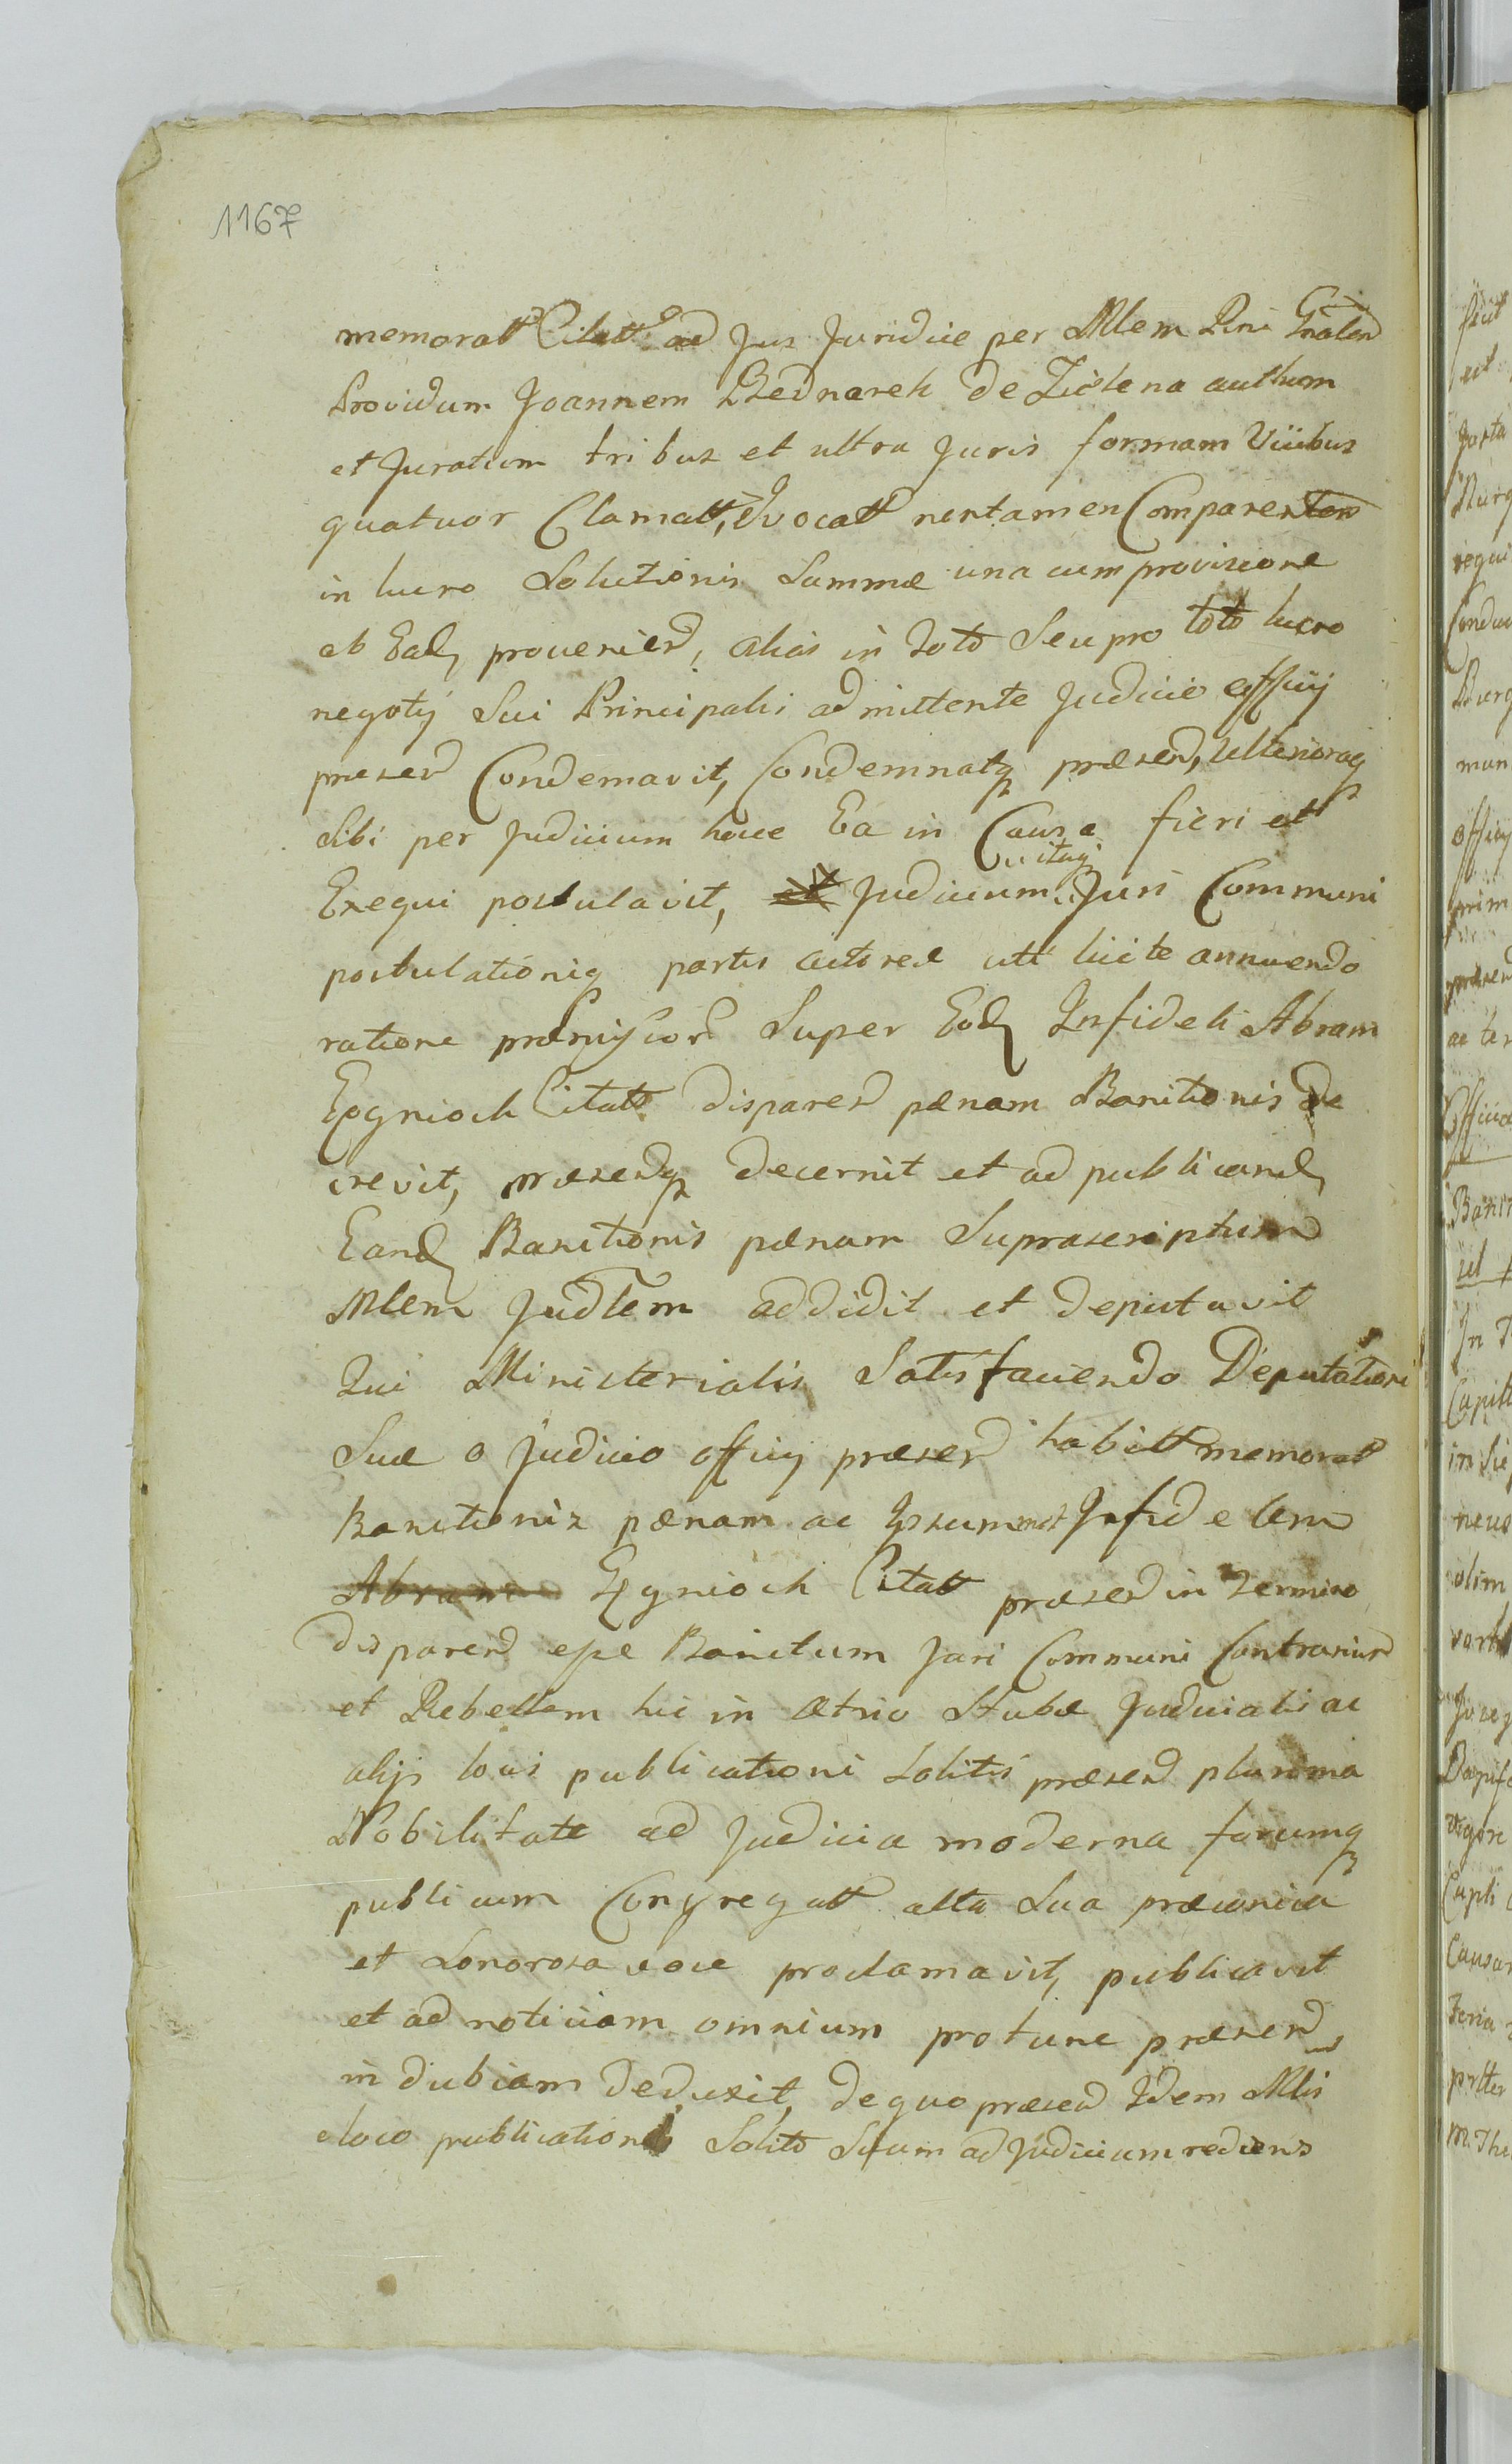 1167
memoratt Citatt ad Jus Juridice per Mlem Rni Gnalem
Providum Joannem Bednarek de Zielena authum
et Juratum tribus et ultra Juris formam Vicibus
quatuor Clamatt, Evocatt nontamen Comparentem
in lucro Solutionis Summæ una cum provisione
ab Ead provenien, alias in toto Seu pro toto lucro
negotÿ Sui Principalis admittente Judicio officÿ
præsen Condemnavit, Condemnatq præsen, Ulterioraq
Sibi per Judicium hocce Ea in Causa fieri et
Exequi postulavit, et Judicium itaq Juri Communi
postulationiq partis actoreæ uti licite annuendo
ratione præmissor Super Eod Infideli Abram
Egnioch Citatt disparen pænam Banitionis De
crevit, præsenq decernit et ad publicand
Eand Banitionis pænam Suprascriptum
Mlem Judlem addidit et deputavit
Qui Ministerialis Satisfaciendo Deputationi
Suæ a Judicio officÿ præsen habitt memoratt
Banitionis pænam ac Ipsummet Infidelem
Abram Egnioch Citatt præsen in Termino
disparen esse Banitum Juri Communi Contrarium
et Rebellem hic in ætrio Stubæ Judicialis ac
alÿs locis publicationi Solitis præsen plurima
Nobilitate ad Judicia moderna forumq
publicum Congregatt alta Sua præconica
et Sonorosa voce proclamavit, publicavit
et ad noticiam omnium protunc præsen
indubiam deduxit, de quo præsen Idem Mlis
eloco publicationis Solito Suum ad Judicium rediens